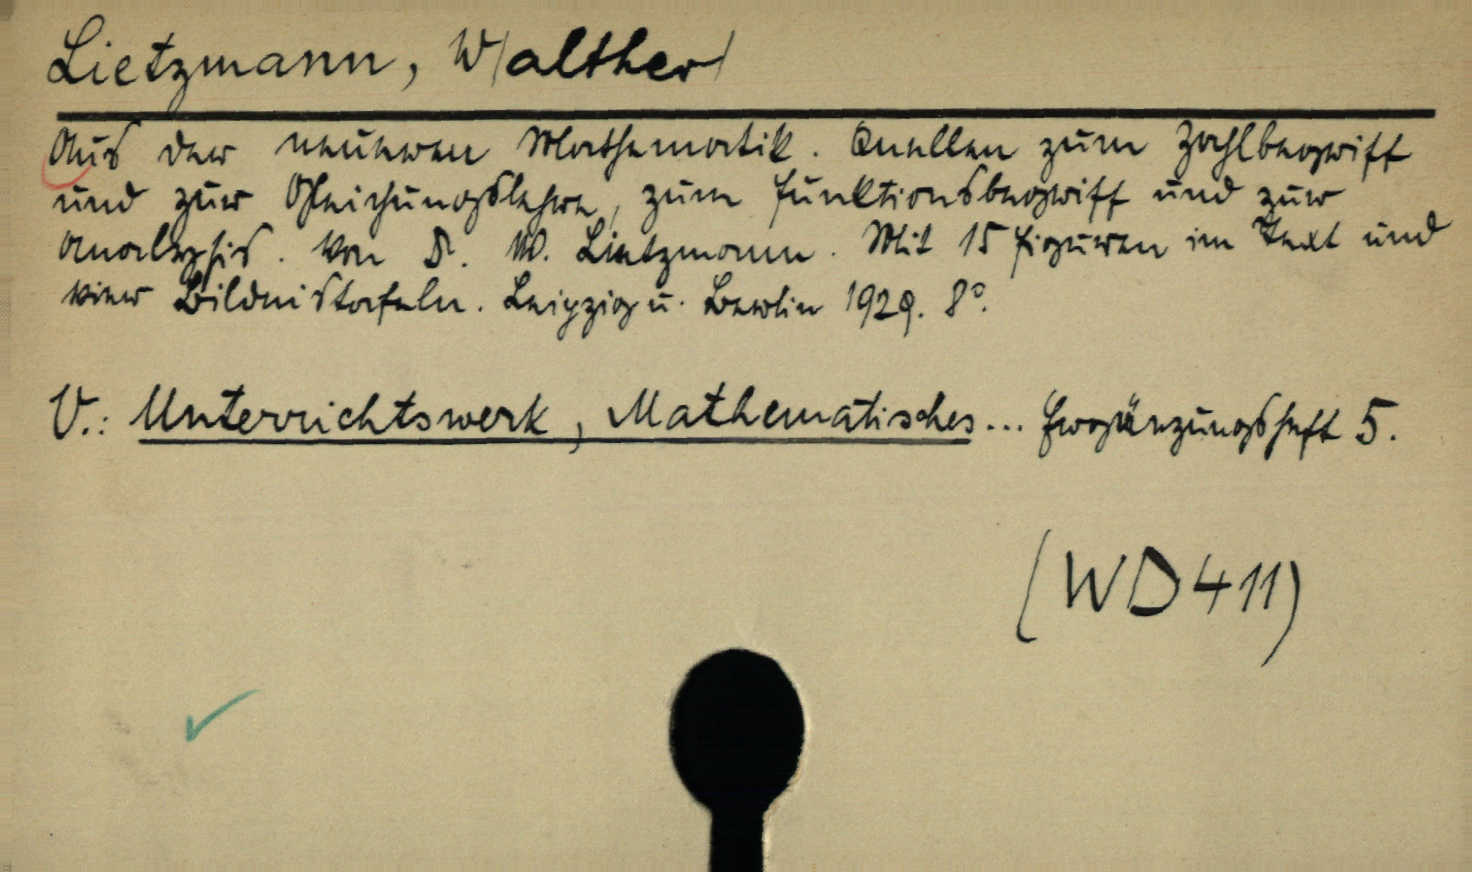 Lietzmann, W/alther/
Aus der neueren Mathematik. Quellen zum Zahlbegriff
und zur Gleichungslehre, zum Funktionsbegriff und zur
Analysis. Von Dr. W. Lietzmann. Mit 15 Figuren im Text und
vier Bildnistafeln. Leipzig u. Berlin 1929. 8°.
V.: Unterrichtswerk, Mathematisches... Ergänzungsheft 5.
(WD411)